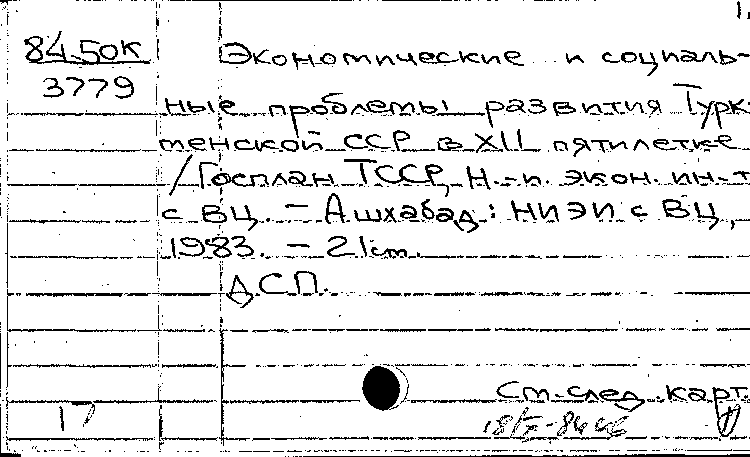 1.
84.50К
3779
Экономические и социаль-
ные проблемы развития Турк
менской ССР в XII пятилетке
/Госплан ТССР, Н.-и. экон. ин-т
с ВЦ. – Ашхабад: НИЭИ с ВЦ,
1983. – 21 см.
Д.С.П.
См. след. карт.
17